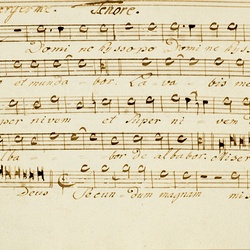 Tenore.
Domi ne hysso po Domi ne
et munda bor. La va bis me
per nivem et super ni vem
lba bor de al babor. Miser
Deus Secun dum magnam mi